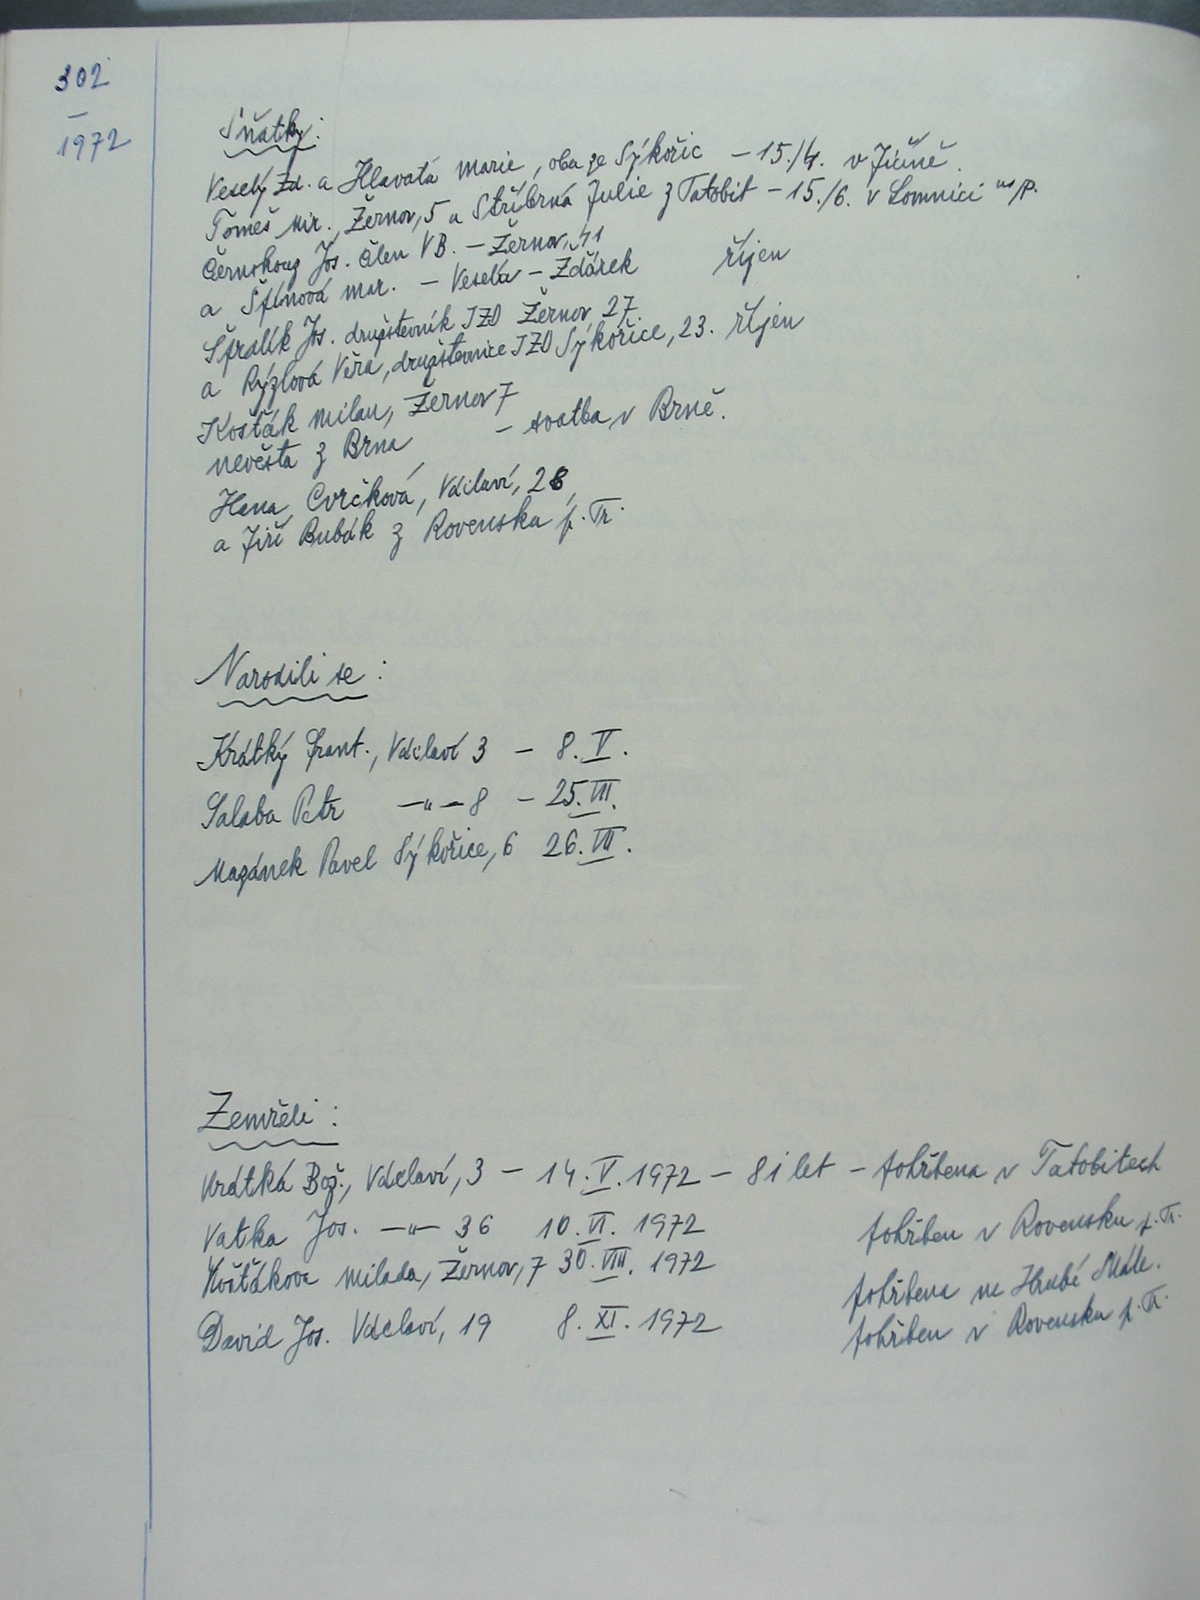 302
—
1972
Sňatky:
Veselý Zd. a Hlavatá Marie, oba ze Sýkořic – 15./4. v Jičíně.
Tomeš Mir., Žernov, 5 a Stříbrná Julie z Tatobit – 15./6. v Lomnici n/P.
Černohouz Jos. člen VB. – Žernov, 41
a Šfínová Mar. – Veselá – Žďárek říjen
Špralík Jos. družstevník JZD Žernov 27.
a Rýzlová Věra, družstevnice JZD Sýkořice, 23. říjen
Košťák Milan, Žernov 7
nevěsta z Brna – svatba v Brně.
Hana Cvrčková, Václaví, 28
a Jiří Bubák z Rovenska p. Tr.
Narodili se :
Krátký Frant., Václaví 3 – 8. V.
Salaba Petr —„— 8 – 25. VII.
Mazánek Pavel Sýkořice, 6 26. VII.
Zemřeli :
Krátká Bož., Václaví, 3 – 14. V. 1972 – 81 let – pohřbena v Tatobitech
Vatka Jos. —„— 36 10. VI. 1972 pohřben v Rovensku p. Tr.
Košťákova Milada, Žernov, 7 30. VIII. 1972 pohřbena na Hrubé Skále.
David Jos. Václaví, 19 8. XI. 1972 pohřben v Rovensku p. Tr.